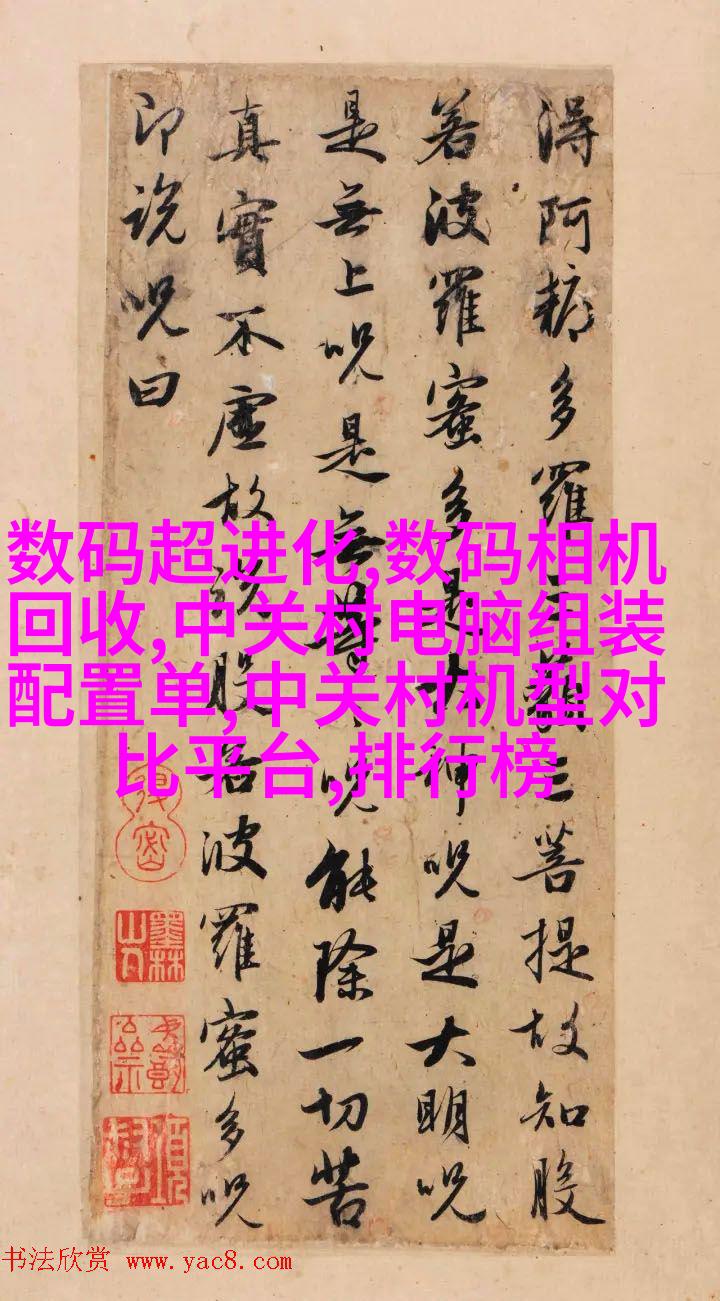 得阿耨多羅三藐三菩提故知般
若波羅蜜多是大神呪是大明呪
是無上呪是無等〻呪能除一切苦
真實不虛故說般若波羅蜜多呪
即說呪曰
墨林山人
数码超进化,数码相机
回收,中关村电脑组装
配置单,中关村机型对
比平台,排行榜
书法欣赏 www.yac8.com